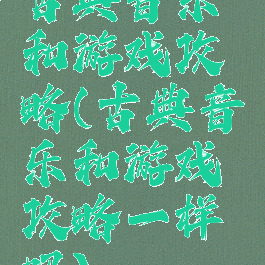 古典音乐
和游戏攻
略(古典音
乐和游戏
攻略一样
吧)